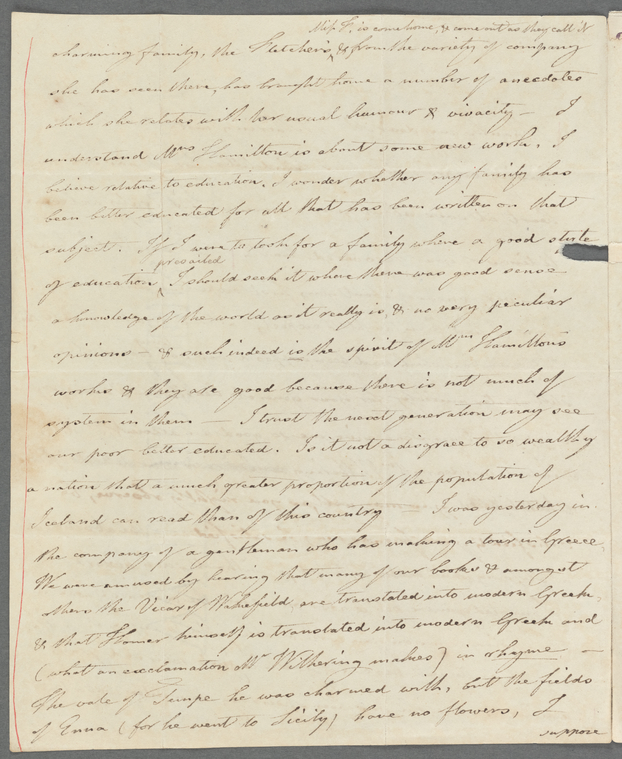 Miss F. is come home, & come out as they call it
charming family, the Fletchers, & from the variety of company
she has seen there, has brought home a number of anecdotes
which she relates with her usual humour & vivacity — I
understand Mrs Hamilton is about some new work, I
believe relative to education. I wonder whether any family has
been better educated for all that has been written on that
subject. If I were to look for a family where a good state
prevailed
of education, I should seek it where there was good sense
a knowledge of the world as it really is, & no very peculiar
opinions — & such indeed is the spirit of Mrs Hamilton's
works & they are good because there is not much of
system in them — I trust the next generation may see
our poor better educated. Is it not a disgrace to so wealthy
a nation that a much greater proportion of the population of
Iceland can read than of this country I was yesterday in
the company of a gentleman who has making a tour in Greece
We were amused by hearing that many of our books & amongst
others the Vicar of Wakefield, are translated into modern Greek,
& that Homer himself is translated into modern Greek and
(what an exclamation Mr Withering makes) in rhyme —
The vale of Tempe he was charmed with, but the fields
of Enna (for he went to Sicily) have no flowers, I
suppose